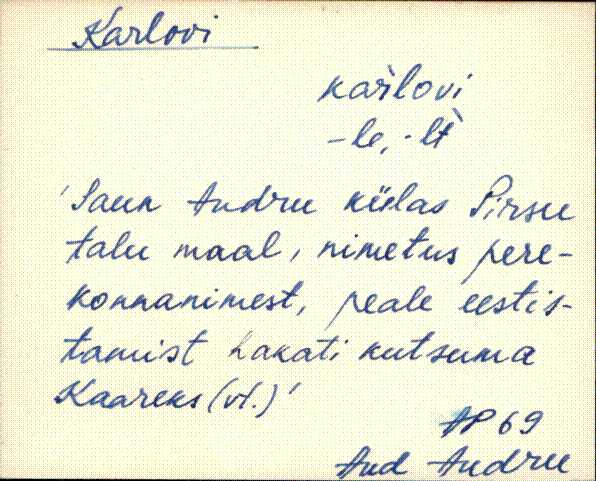 Karlovi
kař̀lovi
-le, -lt̀
'Saun Andru külas Pirsu
talu maal, nimetus pere-
konnanimest, peale eestis-
tamist hakati kutsuma
Kaareks (vt.)'
AP 69
And Andru